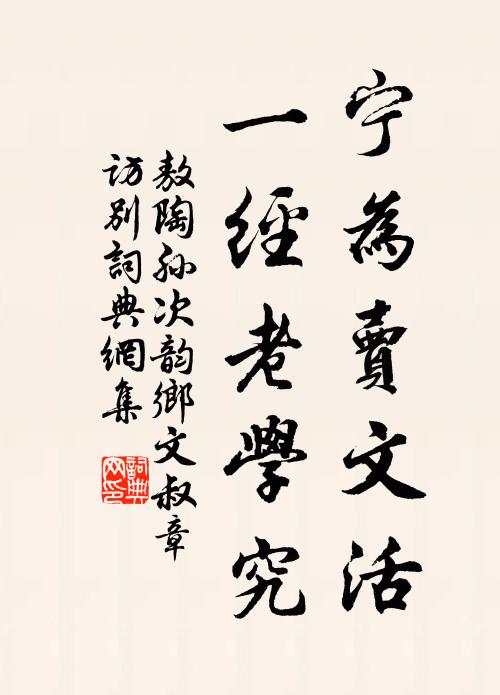 宁為賣文活
一經老學究
敖陶孙次韵鄉文叔章
访别詞典網集
詞典
网印